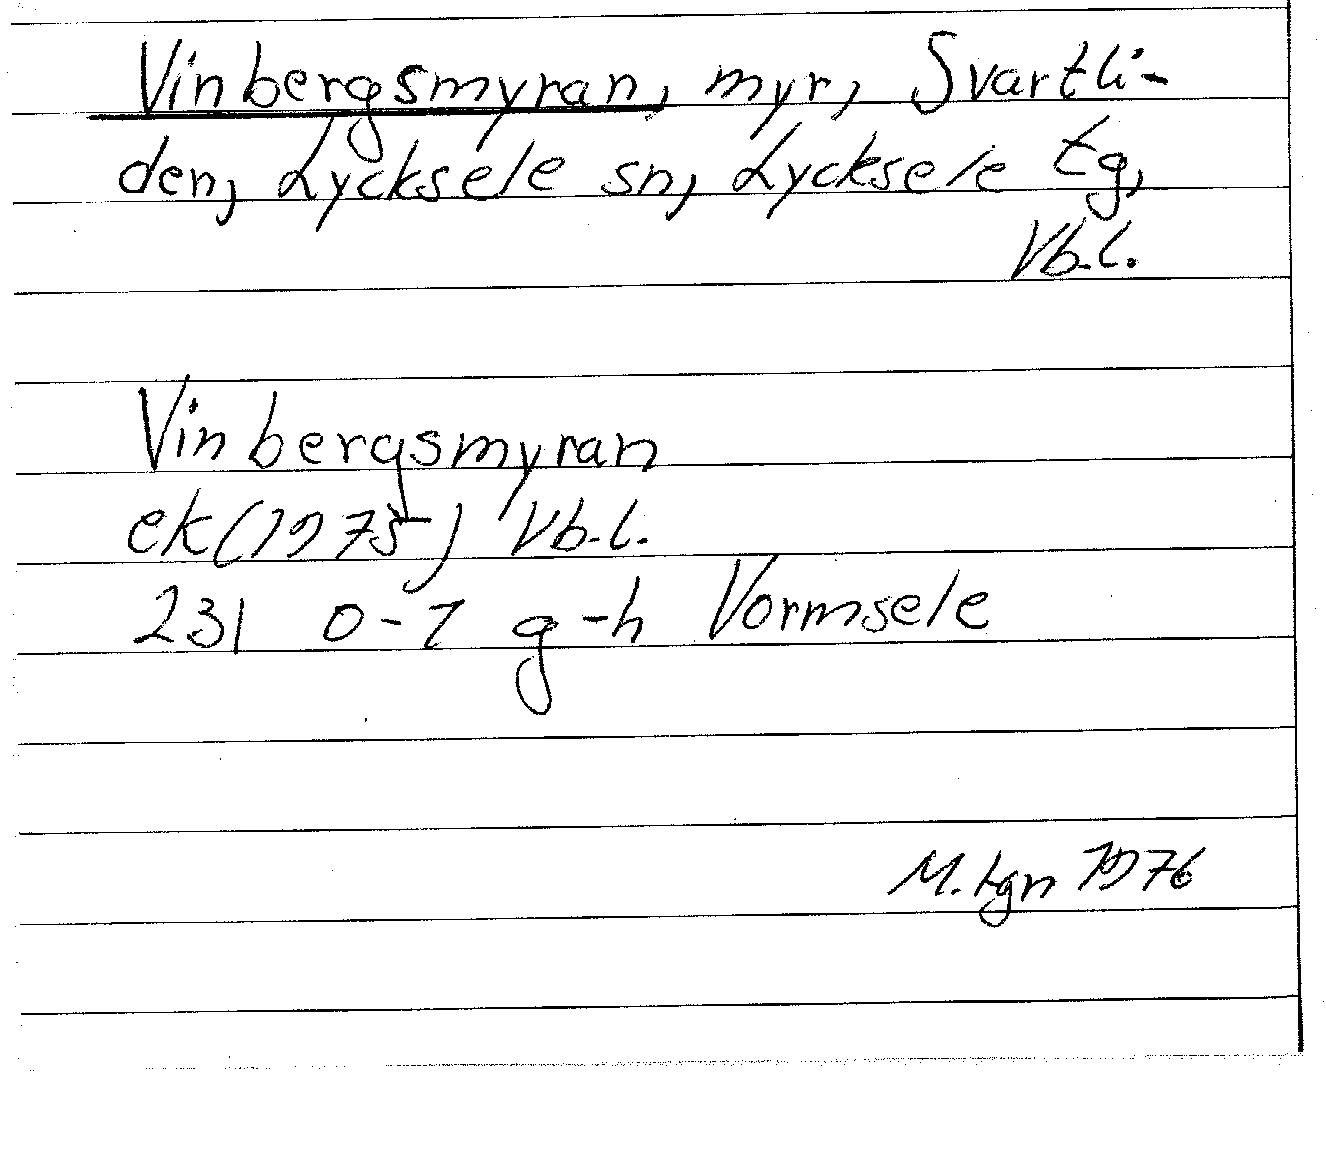 Vinbergsmyran, myr, Svartli-
den, Lycksele sn, Lycksele tg,
Vb.l.
Vinbergsmyran
ek(1975) Vb.l.
231 0-1 g-h Vormsele
M. tgn 1976